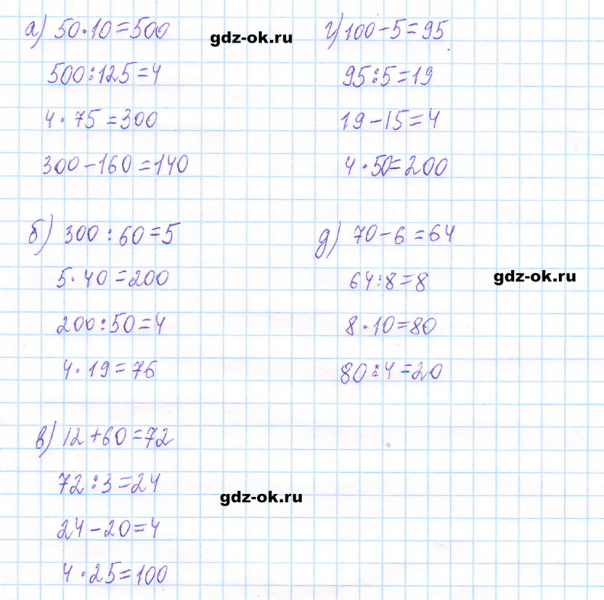 а) 50·10=500
gdz-ok.ru
500:125=4
4·75=300
300-160=140
г) 100-5=95
95:5=19
19-15=4
4·50=200
б) 300:60=5
5·40=200
200:50=4
4·19=76
д) 70-6=64
gdz-ok.ru
64:8=8
8·10=80
80:4=20
в) 12+60=72
72:3=24
gdz-ok.ru
24-20=4
4·25=100